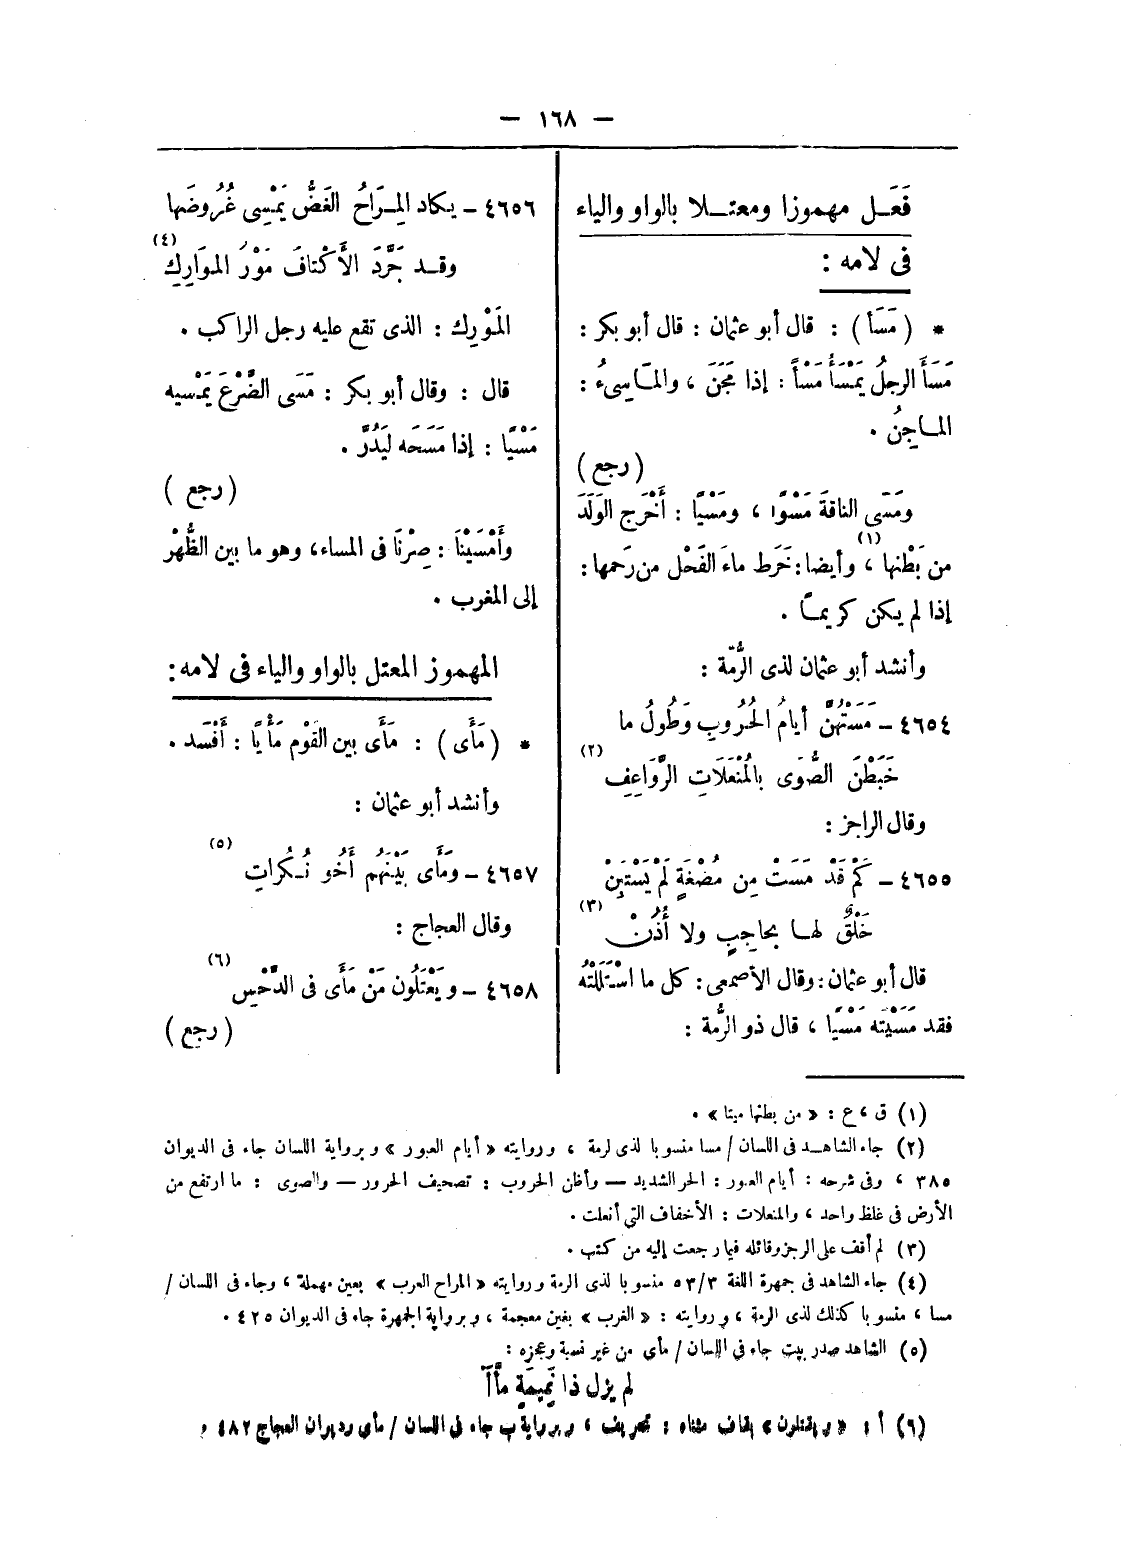 — ١٦٨ —
فَعَـل مهموزا ومعتـلا بالواو والياء
فى لامه :
* ( مَسَأ ) : قال أبو عثمان : قال أبو بكر :
مَسَأَ الرجلُ يَمْسَأُ مَسْأً : إذا مَجَنَ ، والمَـاسِىءُ :
المـاجِنُ .
( رجع )
ومَسَى الناقةَ مَسْوًا ، ومَسْيًا : أَخْرَج الوَلَدَ
من بَطْنها (١) ، وأيضا : خَرَط ماءَ الفَحْل من رَحمها :
إذا لم يكن كريمـًا .
وأنشد أبو عثمان لذى الرُّمّة :
٤٦٥٤ – مَسَتْهُنَّ أيامُ الحُروبِ وَطُولُ ما
خَبَطْنَ الصُّوَى بالمُنْعَلَاتِ الرَّوَاعِفِ (٢)
وقال الراجز :
٤٦٥٥ – كَمْ قَدْ مَسَتْ مِن مُضْغَةٍ لَمْ يَسْتَبِنْ
خَلْقٌ لهـا بحاجِبٍ ولا أُذُنْ (٣)
قال أبو عثمان : وقال الأصمعى : كل ما اسْتَلَلْتَهُ
فقد مَسَيْتَه مَسْيًا ، قال ذو الرُّمة :
٤٦٥٦ – يـكاد المِـرَاحُ الغَضُّ يَمْسِى غُرُوضَها
وقـد جَرَّدَ الأَكْتافَ مَوْرُ المَوارِكِ (٤)
المَوْرِك : الذى تقع عليه رجل الراكب .
قال : وقال أبو بكر : مَسَى الضَّرْعَ يَمْسيه
مَسْيًا : إذا مَسَحَه ليَدُرَّ .
( رجع )
وأَمْسَيْنَا : صِرْنَا فى المساء، وهو ما بين الظُّهْر
إلى المغرب .
المهموز المعتل بالواو والياء فى لامه :
* ( مَأَى ) : مَأَى بين القَوْم مَأْيًا : أَفْسَد .
وأنشد أبو عثمان :
٤٦٥٧ – ومَأَى بَيْنَهُم أَخُو نُـكُراتٍ (٥)
وقال العجاج :
٤٦٥٨ – ويَعْتَلُون مَنْ مَأَى فى الدَّحْسِ (٦)
( رجع )
(١) ق ، ع : « من بطنها ميتا » .
(٢) جاء الشاهـد فى اللسان / مسا منسوبا لذى لرمة ، وروايته « أيام العبور » وبرواية اللسان جاء فى الديوان
٣٨٥ ، وفى شرحه : أيام العبور : الحر الشديد — وأظن الحروب : تصحيف الحرور — والصوى : ما ارتفع من
الأرض فى غلظ واحد ، والمنعلات : الأخفاف التى أنعلت .
(٣) لم أقف على الرجز وقائله فيما رجعت إليه من كتب .
(٤) جاء الشاهد فى جمهرة اللغة ٥٣/٣ منسوبا لذى الرمة وروايته « المراح العرب » بعين مهملة ، وجاء فى اللسان /
مسا ، منسوبا كذلك لذى الرمة ، وروايته : « الغرب » بغين معجمة ، وبرواية الجمهرة جاء فى الديوان ٤٢٥ .
(٥) الشاهد صدر بيت جاء فى اللسان / مأى من غير نسبة وعجزه :
لم يزل ذا نَمِيمَةٍ مأَّآ
(٦) أ : « ويقتلون » بقاف مثناه : تحريف ، وبرواية ب جاء فى اللسان / مأى وديوان العجاج ٤٨٢ .